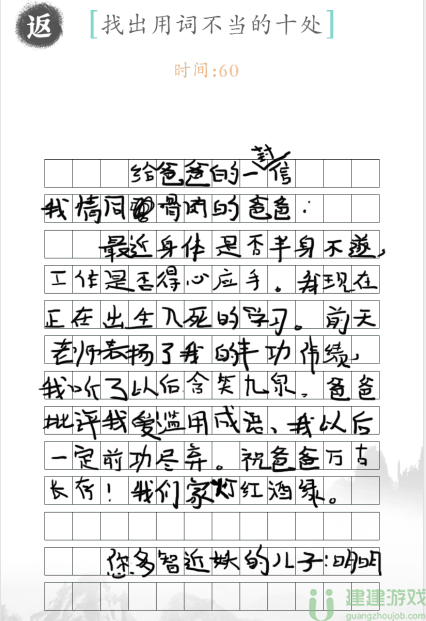 返
[找出用词不当的十处]
时间:60
给爸爸的一封信
我情同骨肉的爸爸：
最近身体是否半身不遂，
工作是否得心应手。我现在
正在出生入死的学习。前天
老师表扬了我的丰功伟绩，
我听了以后含笑九泉。爸爸
批评我爱滥用成语、我以后
一定前功尽弃。祝爸爸万古
长存！我们家灯红酒绿。
您多智近妖的儿子:明明
建建游戏
guangzhoujob.com